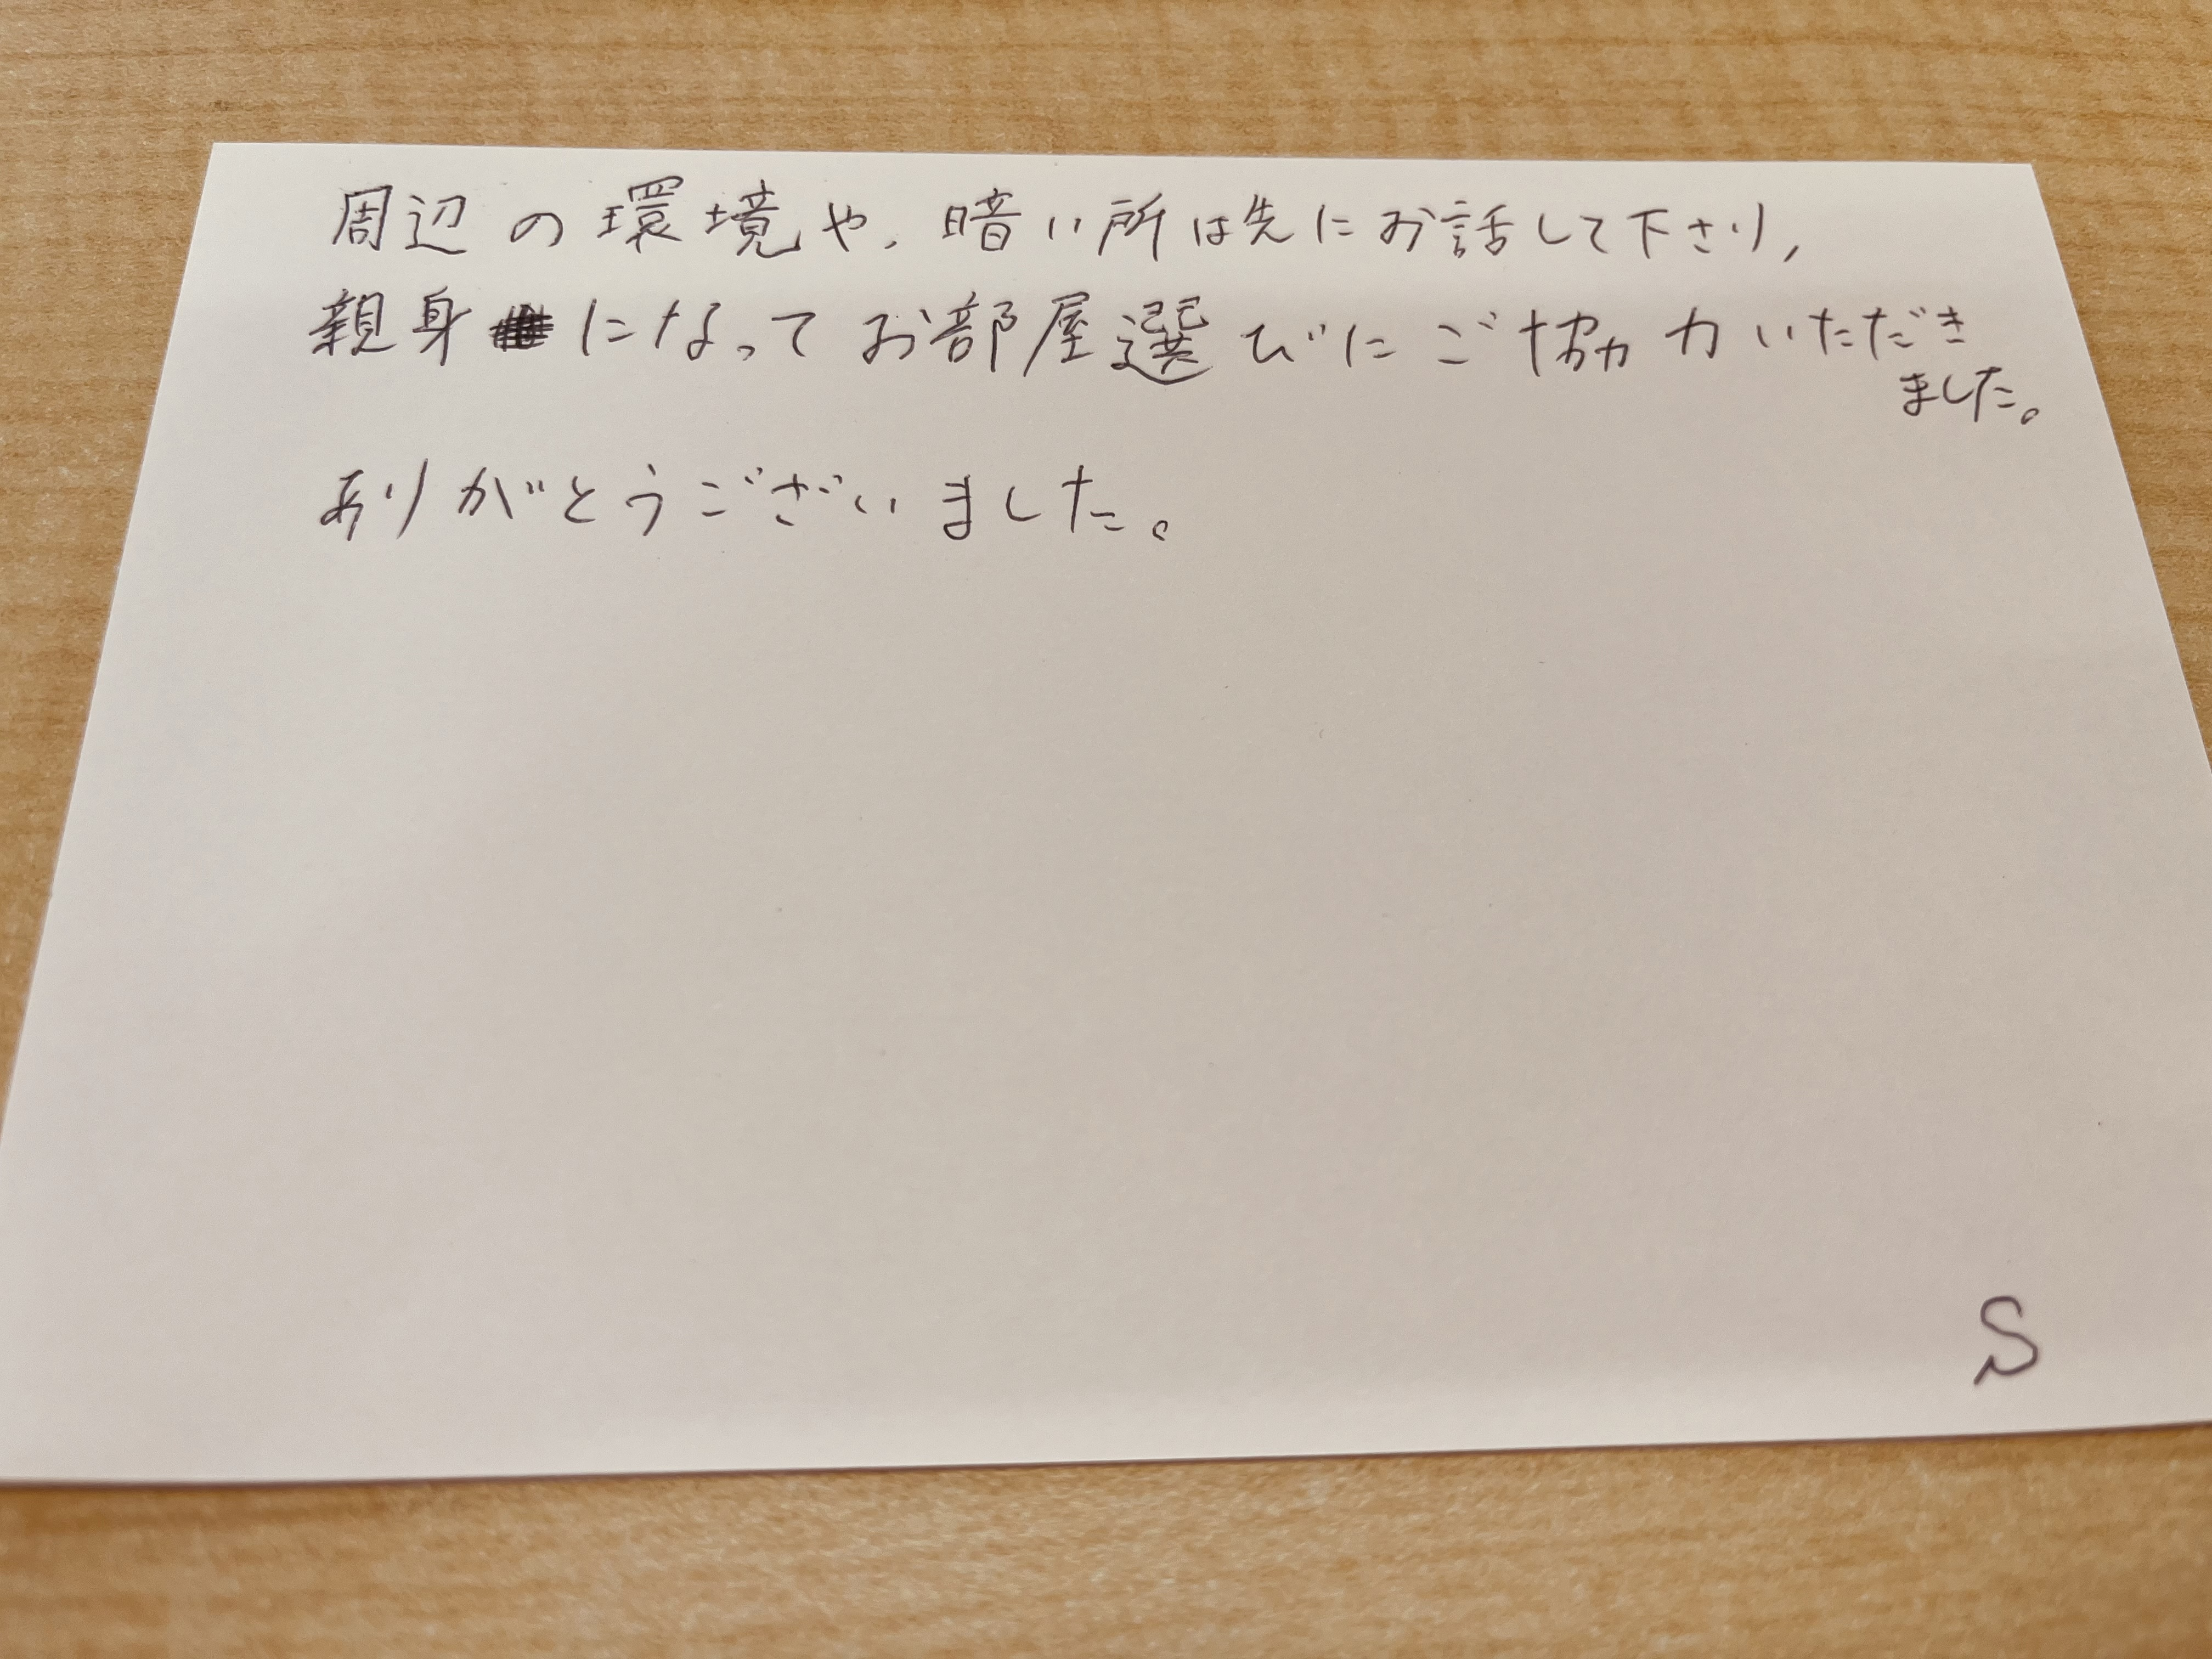 周辺の環境や、暗い所は先にお話して下さり、
親身になってお部屋選びにご協力いただき
ました。
ありがとうございました。
S